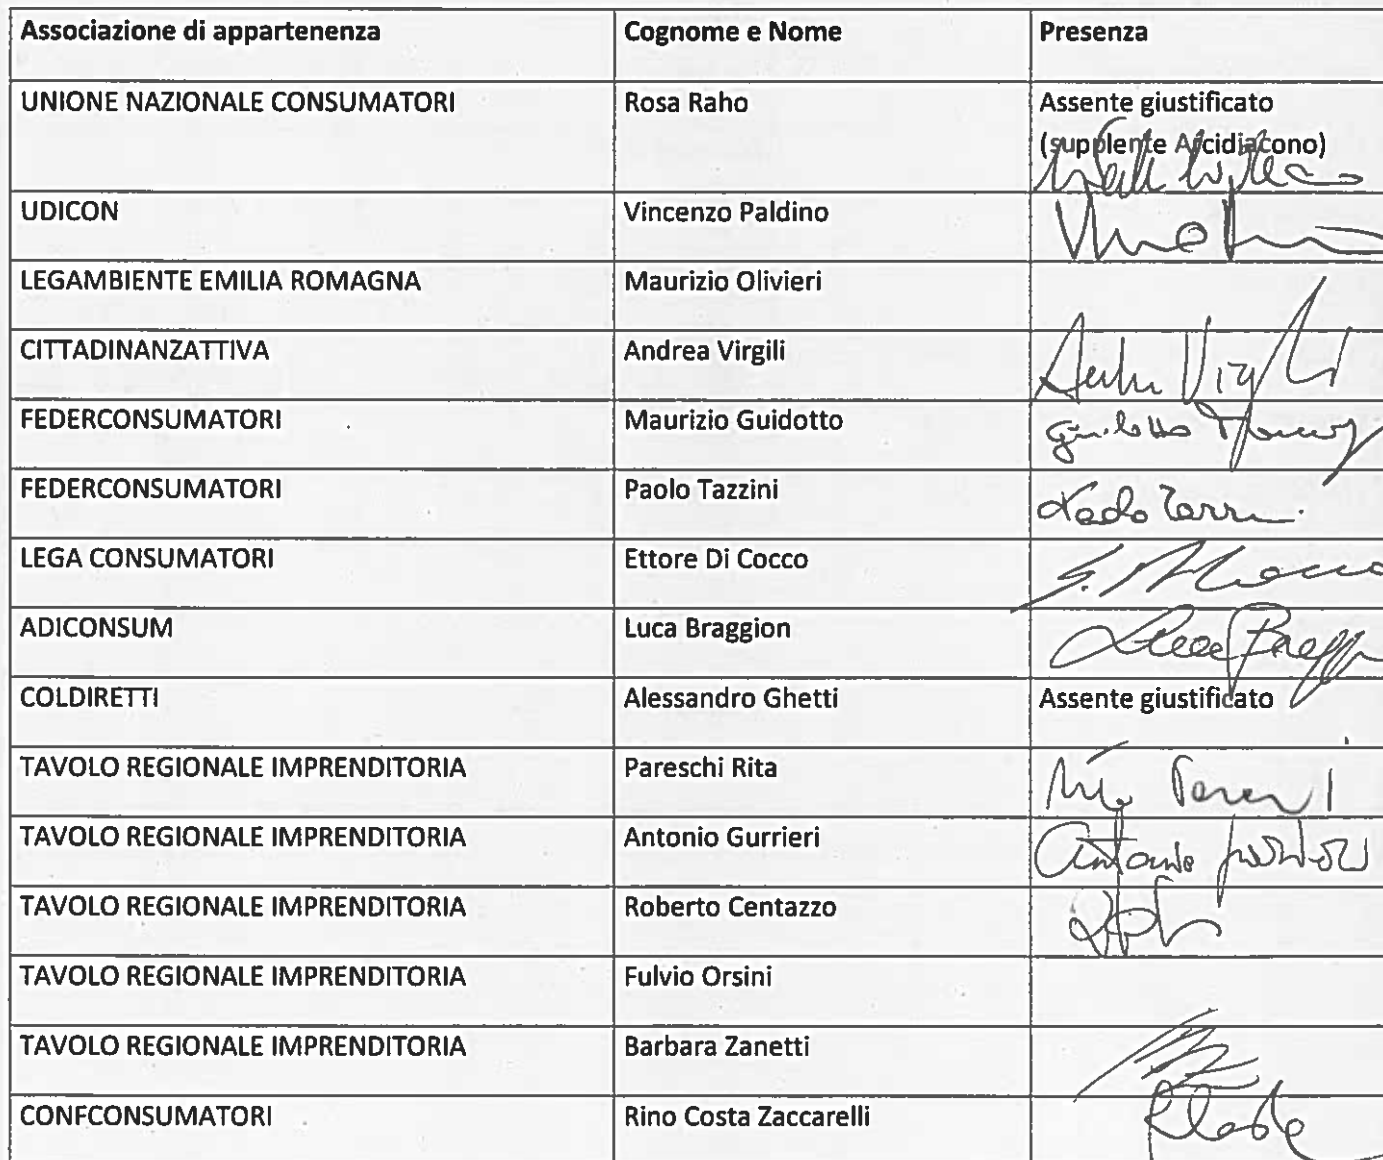 Associazione di appartenenza Cognome e Nome Presenza
UNIONE NAZIONALE CONSUMATORI Rosa Raho Assente giustificato
(supplente Arcidiacono)
UDICON Vincenzo Paldino
LEGAMBIENTE EMILIA ROMAGNA Maurizio Olivieri
CITTADINANZATTIVA Andrea Virgili
FEDERCONSUMATORI Maurizio Guidotto
FEDERCONSUMATORI Paolo Tazzini
LEGA CONSUMATORI Ettore Di Cocco
ADICONSUM Luca Braggion
COLDIRETTI Alessandro Ghetti Assente giustificato
TAVOLO REGIONALE IMPRENDITORIA Pareschi Rita
TAVOLO REGIONALE IMPRENDITORIA Antonio Gurrieri Antonio
TAVOLO REGIONALE IMPRENDITORIA Roberto Centazzo
TAVOLO REGIONALE IMPRENDITORIA Fulvio Orsini
TAVOLO REGIONALE IMPRENDITORIA Barbara Zanetti
CONFCONSUMATORI Rino Costa Zaccarelli